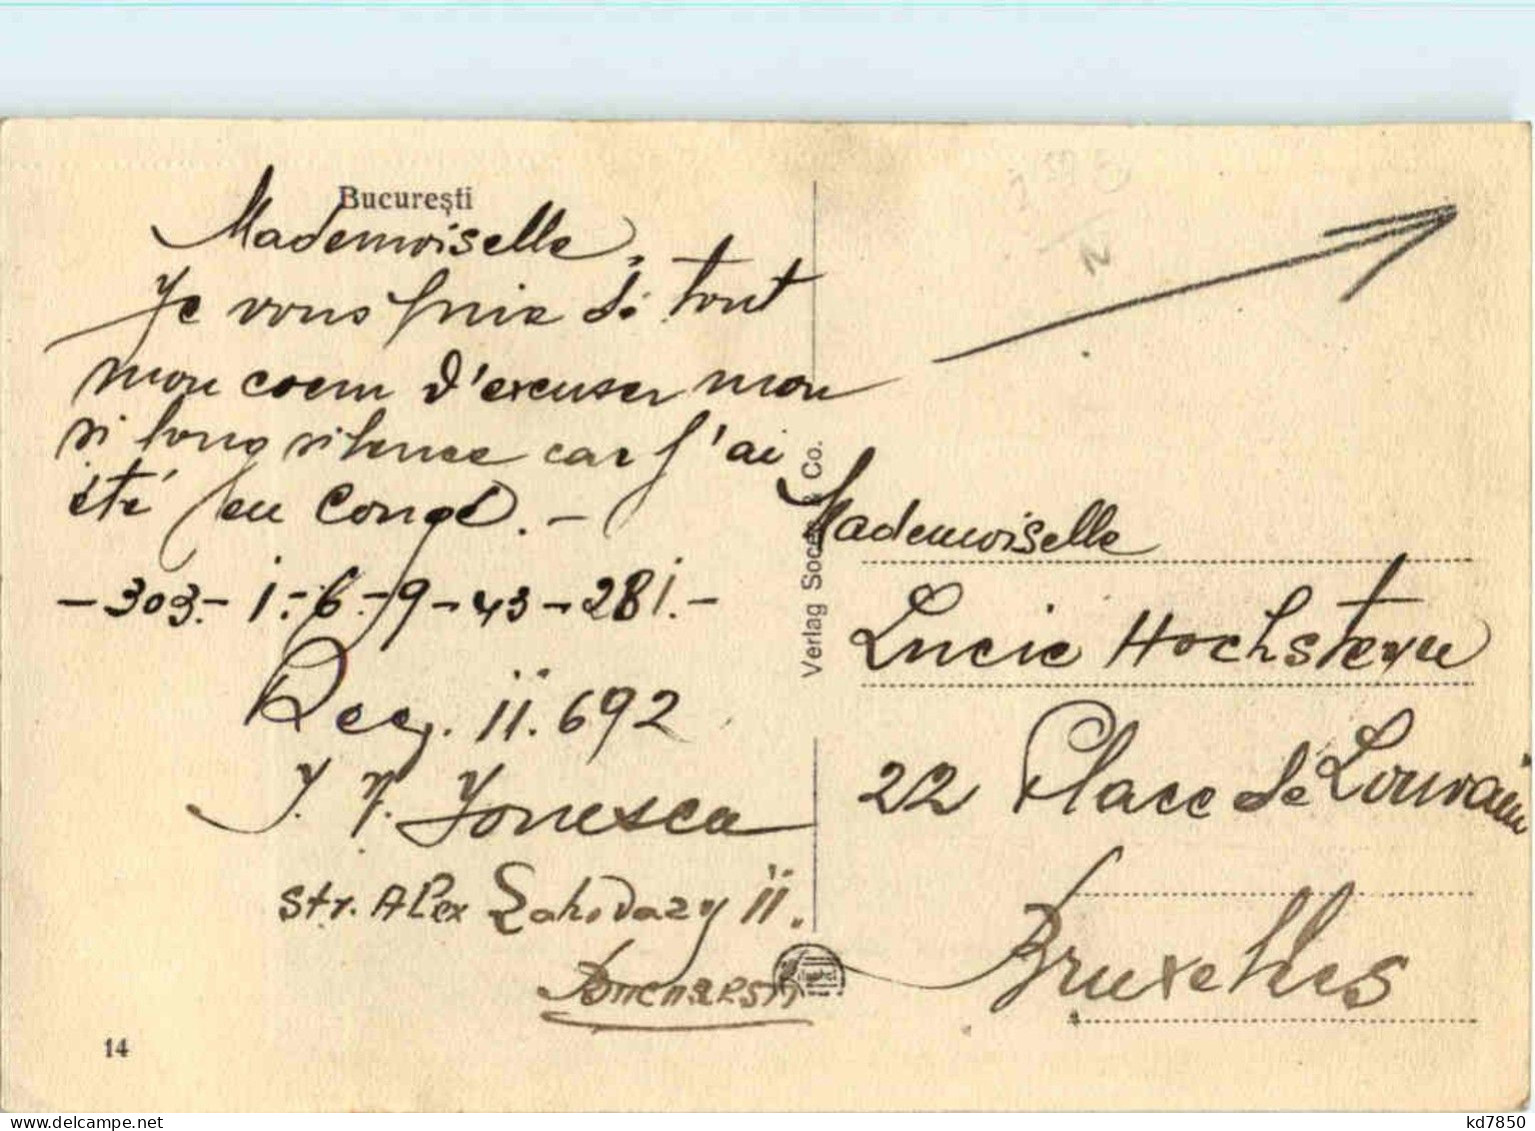 București
Mademoiselle,
Je vous prie de tout
mon coeur d'excuser mon
si long silence car j'ai
été en congé. –
– 303. – 1. – 6. – 9 – 43 – 281. –
Reg. II. 692
J. N. Jonescu
Str. Alex Lahovary II.
Bucuresti
14
Verlag Socec & Co.
Mademoiselle
Lucie Hochsteyn
22 Place de Louvain
Bruxelles
N
kd7850